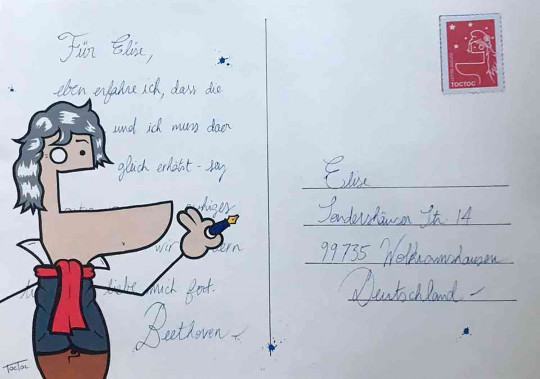 Für Elise,
eben erfahre ich, dass die
und ich muss daer
gleich erhätst - say
ruhiges
wir
liebe mich fort.
Beethoven
TOCTOC
Elise
Sondershäuser Str. 14
99735 Wolkramshausen
Deutschland
TocToc